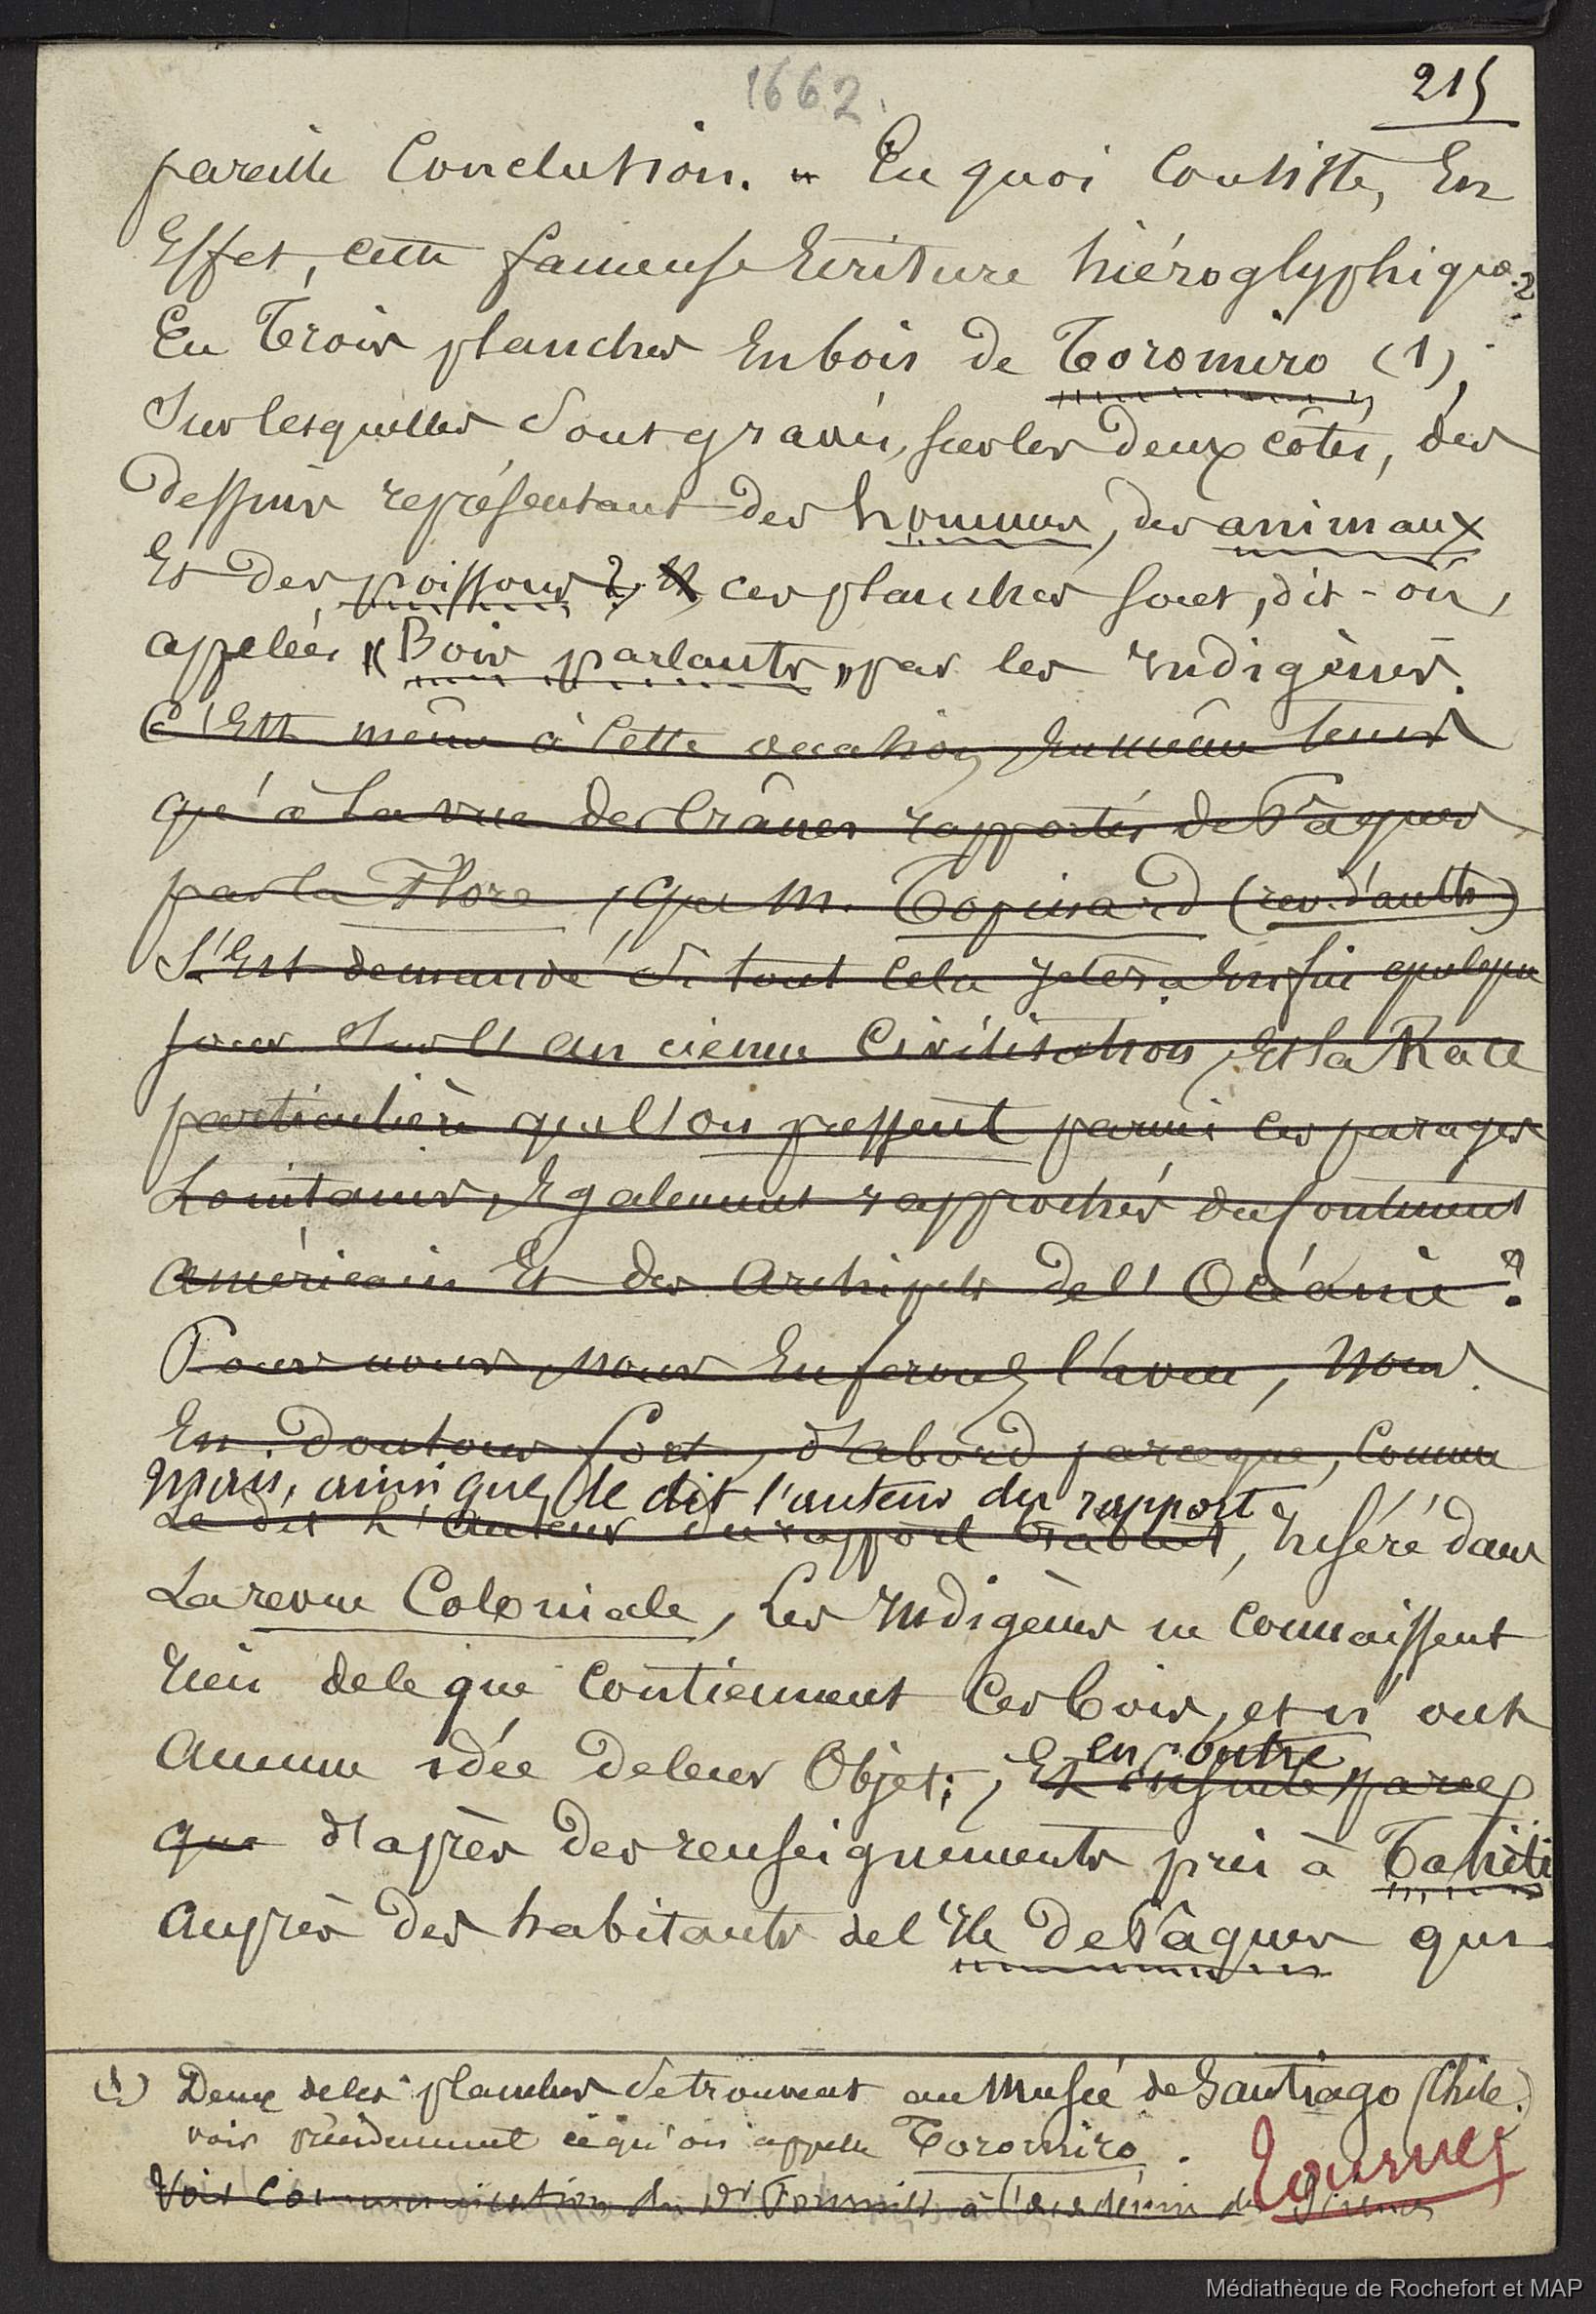 1662.
215
pareille Conclusion. En quoi Consiste, En
Effet, cette fameuse Ecriture hiéroglyphique?
En Trois planches En bois de Toromiro (1),
Sur lesquelles Sont gravés, sur les Deux côtés, des
Dessins représentant des hommes, des animaux
Et des poissons ; ces planches sont, dit-on,
appelées "Bois parlants" par les Indigènes.
C'Est même à Cette occasion, En même tems
qu'à La vue des Crânes rapportés de Pâques
par la Flore, que M. Topinard (rev. d'anth)
S'Est demandé Si tout Cela jetera Enfin quelque
jour Sur l'ancienne Civilisation, Et la Race
particulière que l'on pressent parmi ces parages
Lointains, Egalement rapprochés du Continent
américain Et des Archipels de l'Océanie?
Pour nous, Nous En ferons l'aveu, Nous
En Doutons fort, d'abord parceque, Comme
Mais, ainsi que le dit l'auteur du rapport
Le dit L'Auteur du rapport , Inséré dans
La revue Coloniale, Les Indigènes ne Connaissent
rien de ce que Contiennent Ces bois, et n'ont
Aucune idée de leur Objet; Et ensuite parce
en outre
que d'après des renseignements pris à Tahiti
Auprès des habitants de l'Ile De Pâques qui
(1) Deux de ces planches Se trouvent au Musée de Santiago (Chile.)
voir précédemment ce qu'on appelle Toromiro.
Voir Communication du Dr à l'académie des Sciences
Tournez
Médiathèque de Rochefort et MAP